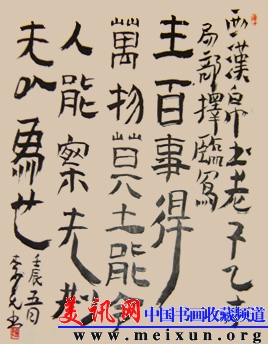 西漢帛书老子乙本
局部擇臨寫
主百事得
萬物莫不土能争
人能察夫
夫
壬辰五月
美讯网中国书画收藏频道
www.meixun.org